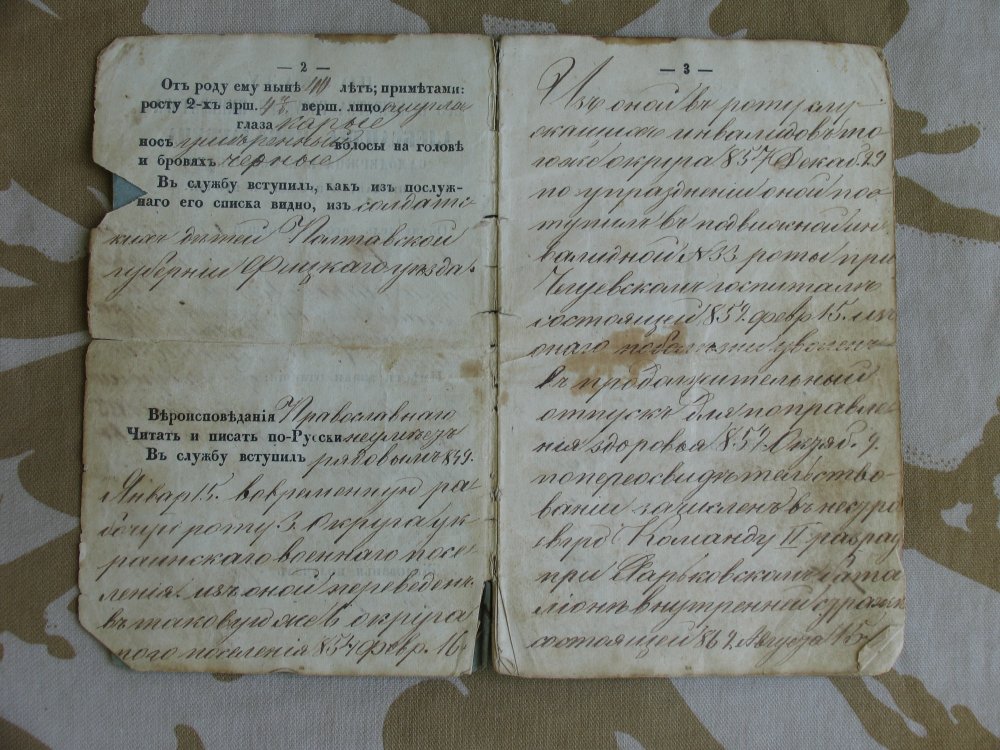 — 2 —
Отъ роду ему нынѣ лѣтъ; примѣтами:
росту 2-хъ арш. 4 верш. лицо
глаза карые
носъ волосы на головѣ
и бровяхъ черные
Въ службу вступилъ, какъ изъ послуж-
наго его списка видно, изъ солдатс
кихъ дѣтей Полтавской
губерніи уѣзда.
Вѣроисповѣданія Православнаго
Читать и писать по-Русски неумѣетъ
Въ службу вступилъ рядовымъ 849.
Январ 15. вовременную ра
бочую роту 3. Округа ук
раинскаго военнаго посе
ленія. изъ оной переведенъ
въ таковую же 6 округа
того поселенія 854 февр. 16
— 3 —
Изъ оной въ роту слу
инвалидовъ то
гоже округа 857 Декаб. 29
по упраздненіи оной пос
тупилъ въ подвижная ин
валидной №33 роты при
Чугуевскомъ госпиталѣ
состоящей 859. февр 15. изъ
онаго поболѣзни уволенъ
въ продолжительный
отпускъ для поправле
нія здоровья 859. Октяб. 9.
попереосвидѣтельство
ваніи зачисленъ въ
Команду II разряд
при Харьковскомъ бата
ліонѣ внутренней стражи
состоящей 862 Августа 15